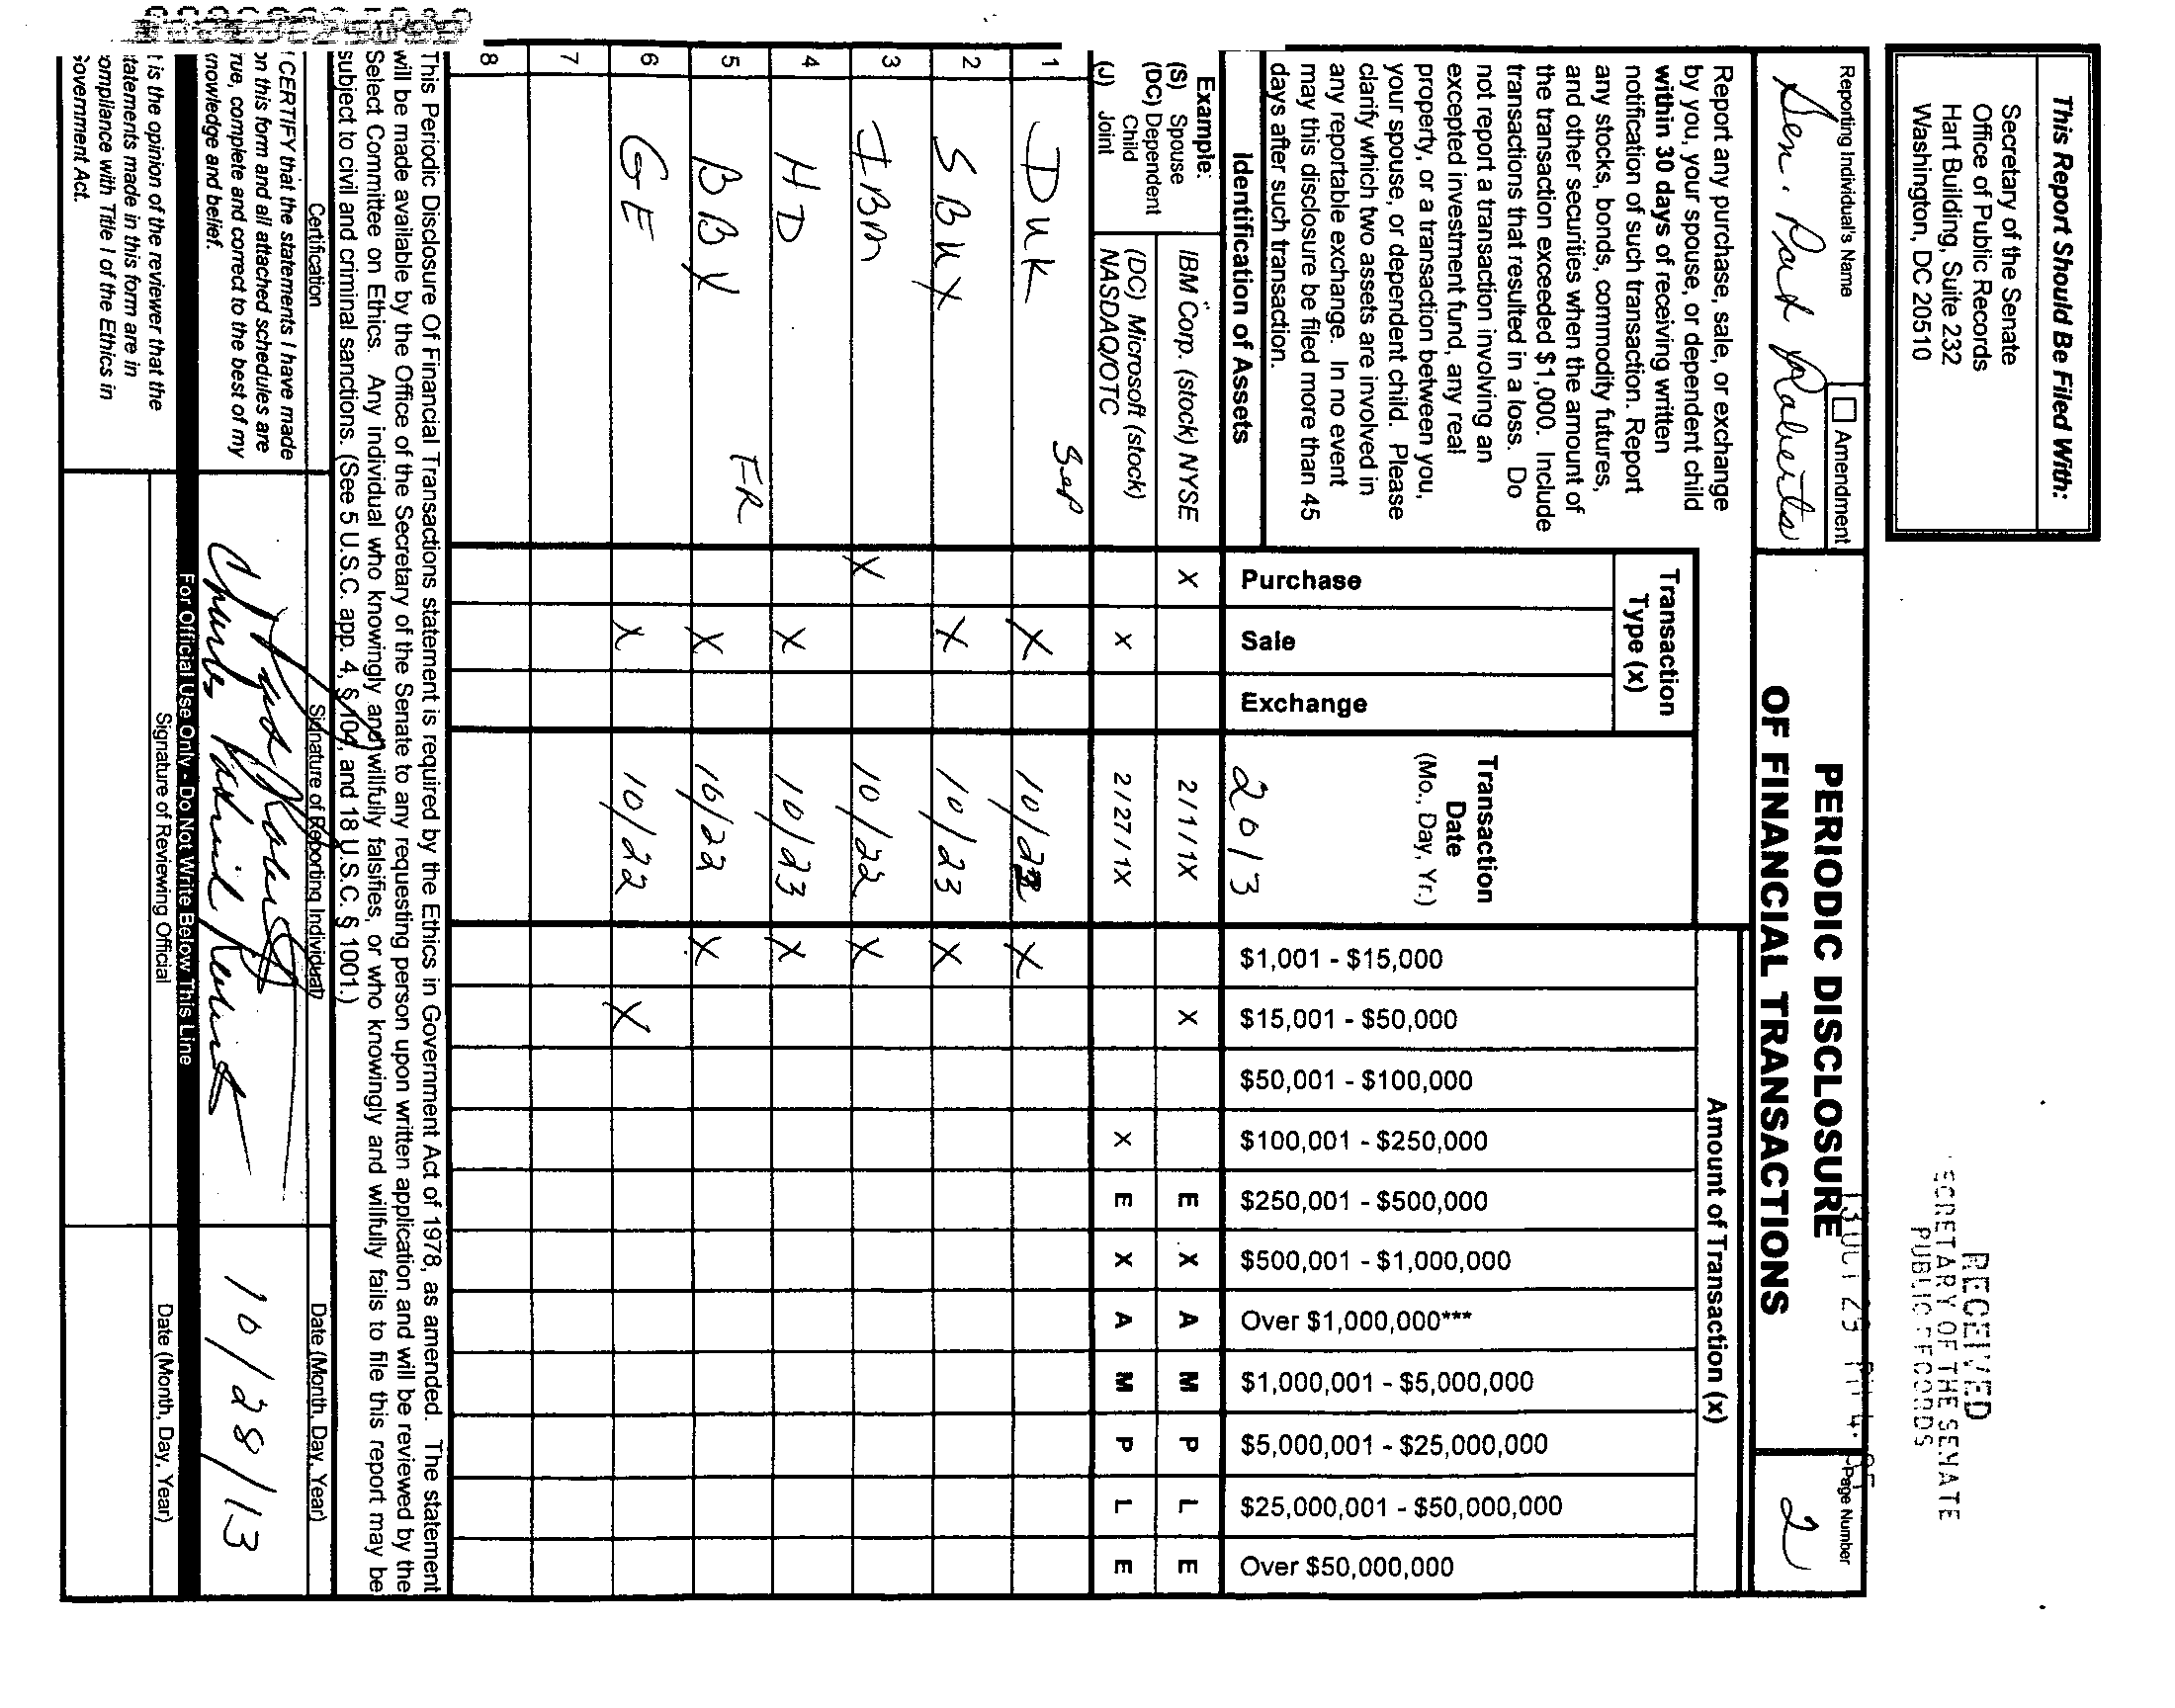 RECEIVED
SECRETARY OF THE SENATE
PUBLIC RECORDS
This Report Should Be Filed With:
Secretary of the Senate
Office of Public Records
Hart Building, Suite 232
Washington, DC 20510
PERIODIC DISCLOSURE
OF FINANCIAL TRANSACTIONS
Reporting Individual's Name
☐ Amendment
Sen. Pat Roberts
Page Number
2
Report any purchase, sale, or exchange
by you, your spouse, or dependent child
within 30 days of receiving written
notification of such transaction. Report
any stocks, bonds, commodity futures,
and other securities when the amount of
the transaction exceeded $1,000. Include
transactions that resulted in a loss. Do
not report a transaction involving an
excepted investment fund, any real
property, or a transaction between you,
your spouse, or dependent child. Please
clarify which two assets are involved in
any reportable exchange. In no event
may this disclosure be filed more than 45
days after such transaction.
Identification of Assets
Transaction
Type (x)
Purchase
Sale
Exchange
Transaction
Date
(Mo., Day, Yr.)
2013
Amount of Transaction (x)
$1,001 - $15,000
$15,001 - $50,000
$50,001 - $100,000
$100,001 - $250,000
$250,001 - $500,000
$500,001 - $1,000,000
Over $1,000,000***
$1,000,001 - $5,000,000
$5,000,001 - $25,000,000
$25,000,001 - $50,000,000
Over $50,000,000
Example:
(S) Spouse
(DC) Dependent
Child
(J) Joint
IBM Corp. (stock) NYSE X 2/1/1X X E X A M P L E
(DC) Microsoft (stock)
NASDAQ/OTC X 2/27/1X X E X A M P L E
1 DUK Sep X X
2 SBUX X 10/23 X
3 IBM X 10/22 X
4 HD X 10/23 X
5 BBY FR X 10/22 X
6 GE X 10/22 X
7
8
This Periodic Disclosure Of Financial Transactions statement is required by the Ethics in Government Act of 1978, as amended. The statement
will be made available by the Office of the Secretary of the Senate to any requesting person upon written application and will be reviewed by the
Select Committee on Ethics. Any individual who knowingly and willfully falsifies, or who knowingly and willfully fails to file this report may be
subject to civil and criminal sanctions. (See 5 U.S.C. app. 4, § 104, and 18 U.S.C. § 1001.)
Certification
Signature of Reporting Individual
Date (Month, Day, Year)
I CERTIFY that the statements I have made
on this form and all attached schedules are
true, complete and correct to the best of my
knowledge and belief.
Pat Roberts
10/28/13
For Official Use Only - Do Not Write Below This Line
t is the opinion of the reviewer that the
statements made in this form are in
compliance with Title I of the Ethics in
Government Act.
Signature of Reviewing Official
Date (Month, Day, Year)